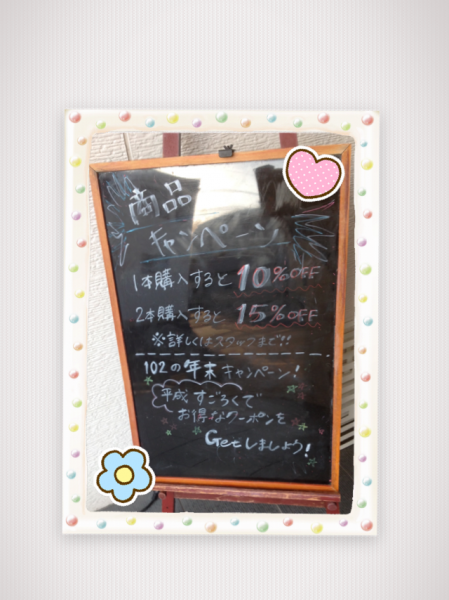 商品
キャンペーン
1本購入すると 10%OFF
2本購入すると 15%OFF
※詳しくはスタッフまで!!
102の年末キャンペーン!
平成すごろくで
お得なクーポンを
Getしましょう!